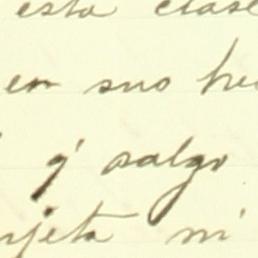 esta clase
en sus he
q' salgo
rjeta ni